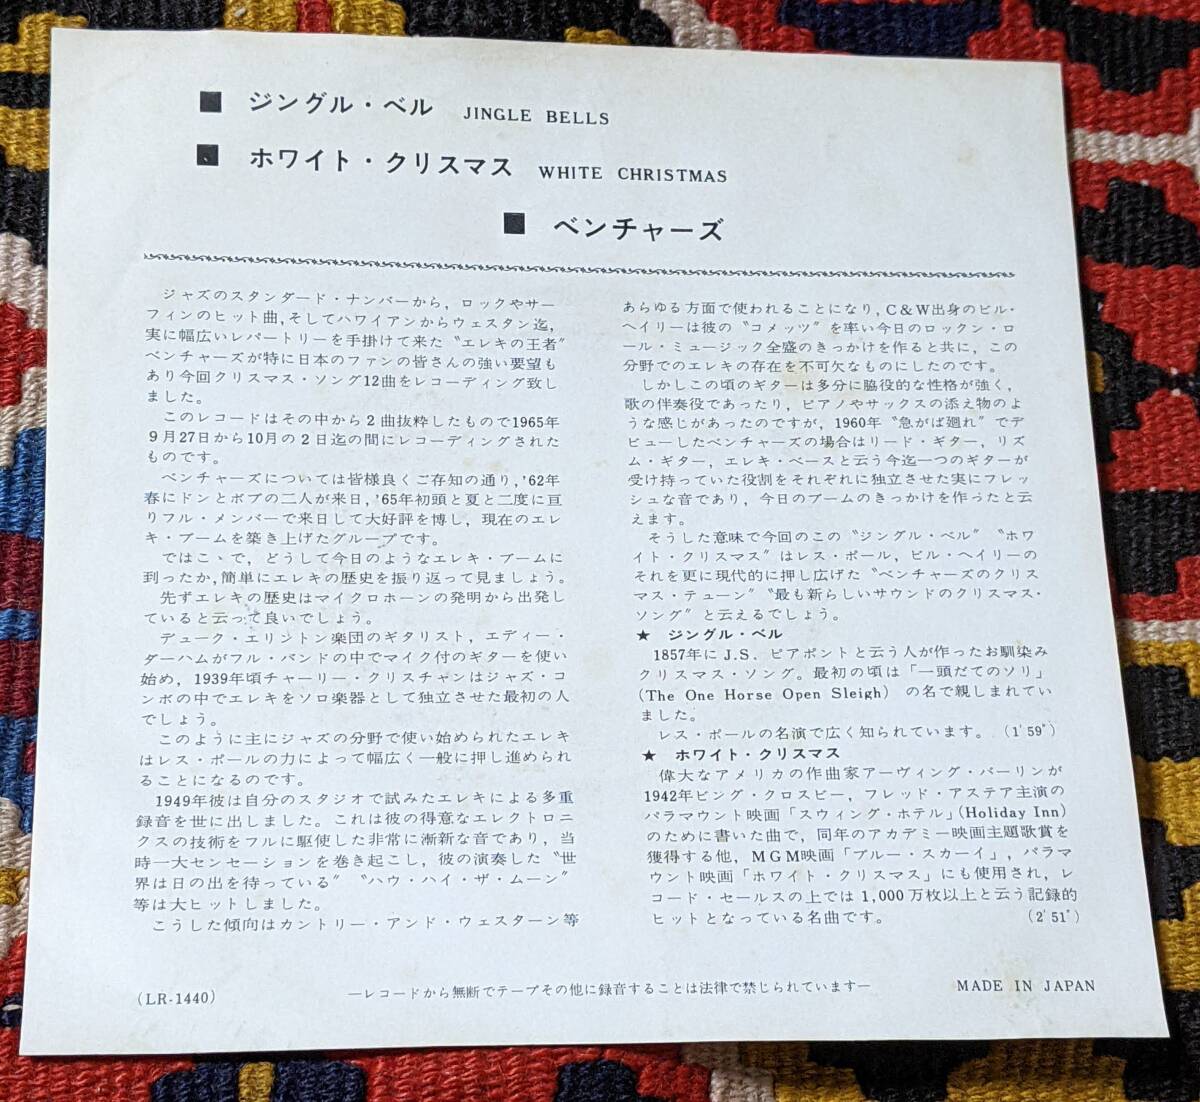 ■ ジングル・ベル JINGLE BELLS
■ ホワイト・クリスマス WHITE CHRISTMAS
■ ベンチャーズ
ジャズのスタンダード・ナンバーから，ロックやサー
フィンのヒット曲，そしてハワイアンからウェスタン迄，
実に幅広いレパートリーを手掛けて来た〝エレキの王者〟
ベンチャーズが特に日本のファンの皆さんの強い要望も
あり今回クリスマス・ソング12曲をレコーディング致し
ました。
このレコードはその中から２曲抜粋したもので1965年
９月27日から10月の２日迄の間にレコーディングされた
ものです。
ベンチャーズについては皆様良くご存知の通り，'62年
春にドンとボブの二人が来日，'65年初頭と夏と二度に亘
りフル・メンバーで来日して大好評を博し，現在のエレ
キ・ブームを築き上げたグループです。
ではこゝで，どうして今日のようなエレキ・ブームに
到ったか，簡単にエレキの歴史を振り返って見ましょう。
先ずエレキの歴史はマイクロホーンの発明から出発し
ていると云って良いでしょう。
デューク・エリントン楽団のギタリスト，エディー・
ダーハムがフル・バンドの中でマイク付のギターを使い
始め，1939年頃チャーリー・クリスチャンはジャズ・コ
ンボの中でエレキをソロ楽器として独立させた最初の人
でしょう。
このように主にジャズの分野で使い始められたエレキ
はレス・ポールの力によって幅広く一般に押し進められ
ることになるのです。
1949年彼は自分のスタジオで試みたエレキによる多重
録音を世に出しました。これは彼の得意なエレクトロニ
クスの技術をフルに駆使した非常に漸新な音であり，当
時一大センセーションを巻き起こし，彼の演奏した〝世
界は日の出を待っている〟〝ハウ・ハイ・ザ・ムーン〟
等は大ヒットしました。
こうした傾向はカントリー・アンド・ウェスターン等
あらゆる方面で使われることになり，C＆W出身のビル・
ヘイリーは彼の〝コメッツ〟を率い今日のロックン・ロ
ール・ミュージック全盛のきっかけを作ると共に，この
分野でのエレキの存在を不可欠なものにしたのです。
しかしこの頃のギターは多分に脇役的な性格が強く，
歌の伴奏役であったり，ピアノやサックスの添え物のよ
うな感じがあったのですが，1960年〝急がば廻れ〟でデ
ビューしたベンチャーズの場合はリード・ギター，リズ
ム・ギター，エレキ・ベースと云う今迄一つのギターが
受け持っていた役割をそれぞれに独立させた実にフレッ
シュな音であり，今日のブームのきっかけを作ったと云
えます。
そうした意味で今回のこの〝ジングル・ベル〟〝ホワ
イト・クリスマス〟はレス・ポール，ビル・ヘイリーの
それを更に現代的に押し広げた〝ベンチャーズのクリス
マス・テューン〟〝最も新らしいサウンドのクリスマス・
ソング〟と云えるでしょう。
★ ジングル・ベル
1857年にJ.S．ピアポントと云う人が作ったお馴染み
クリスマス・ソング。最初の頃は「一頭だてのソリ」
(The One Horse Open Sleigh) の名で親しまれてい
ました。
レス・ポールの名演で広く知られています。(1′59″)
★ ホワイト・クリスマス
偉大なアメリカの作曲家アーヴィング・バーリンが
1942年ビング・クロスビー，フレッド・アステア主演の
パラマウント映画「スウィング・ホテル」(Holiday Inn)
のために書いた曲で，同年のアカデミー映画主題歌賞を
獲得する他，MGM映画「ブルー・スカーイ」，パラマ
ウント映画「ホワイト・クリスマス」にも使用され，レ
コード・セールスの上では1,000万枚以上と云う記録的
ヒットとなっている名曲です。 (2′51″)
(LR-1440)
―レコードから無断でテープその他に録音することは法律で禁じられています―
MADE IN JAPAN